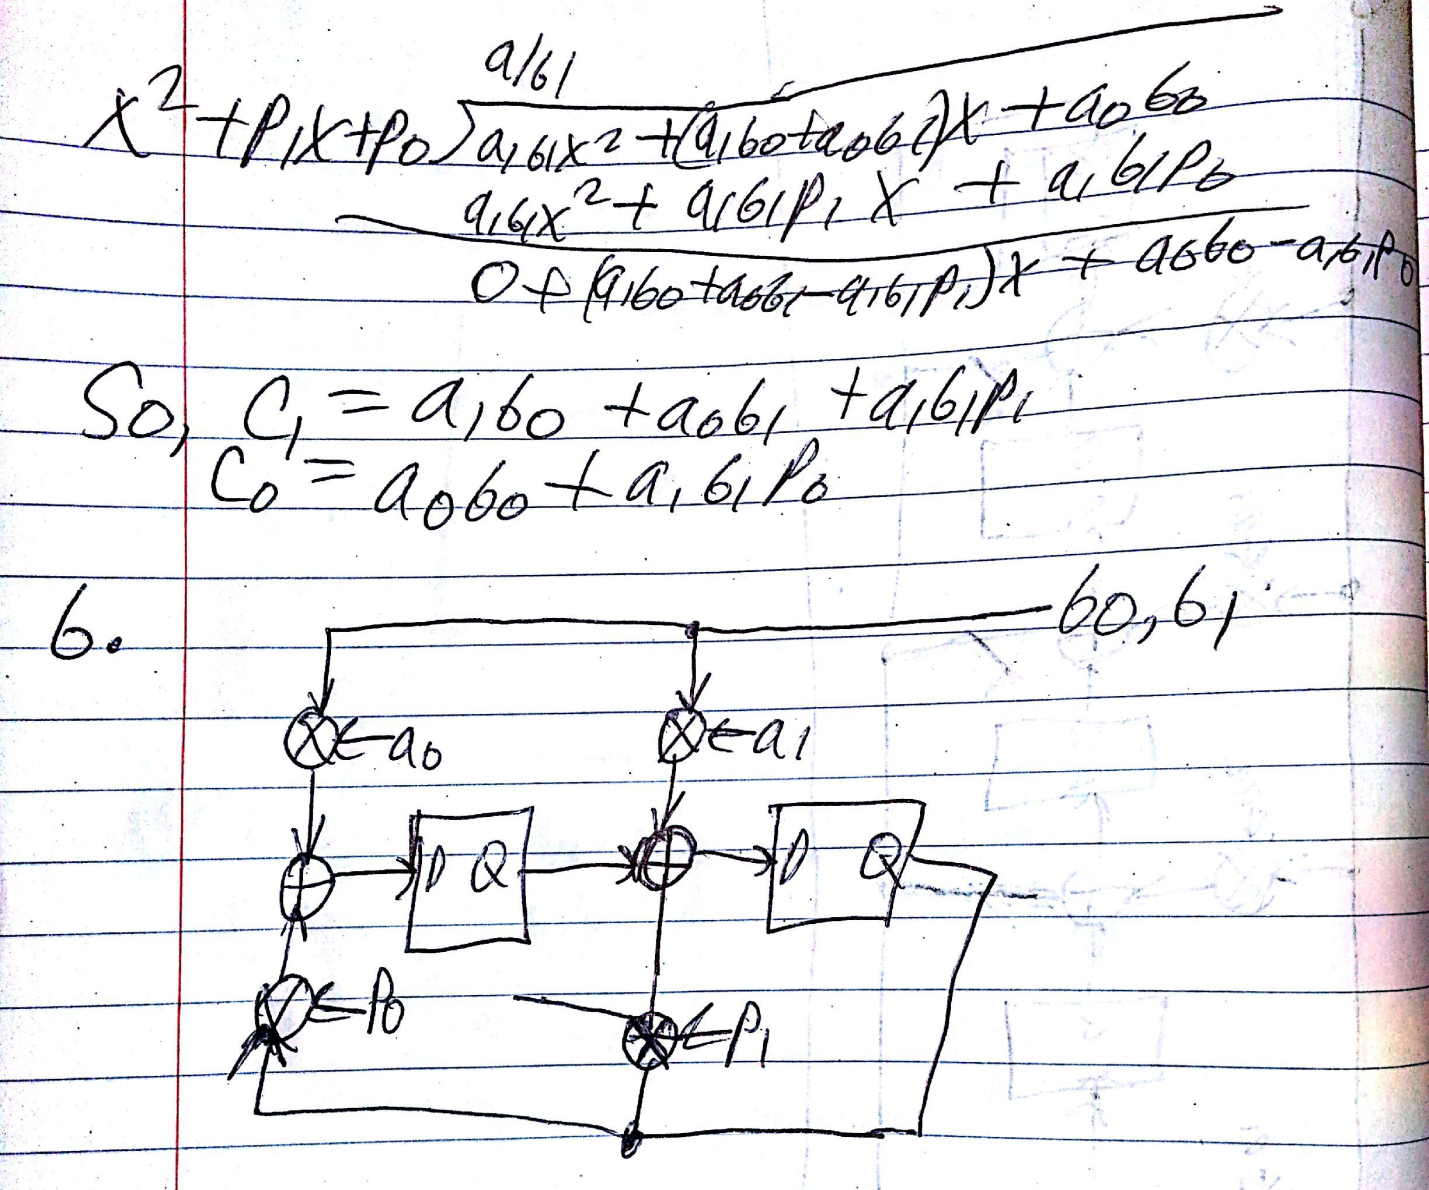 a1b1
x²+p1x+p0)a1b1x²+(a1b0+a0b1)x+a0b0
a1b1x²+a1b1p1x+a1b1p0
0+(a1b0+a0b1-a1b1p1)x+a0b0-a1b1p0
So, C1=a1b0+a0b1+a1b1p1
C0=a0b0+a1b1p0
6. b0,b1
←a0 ←a1
D Q D Q
←P0 ←P1